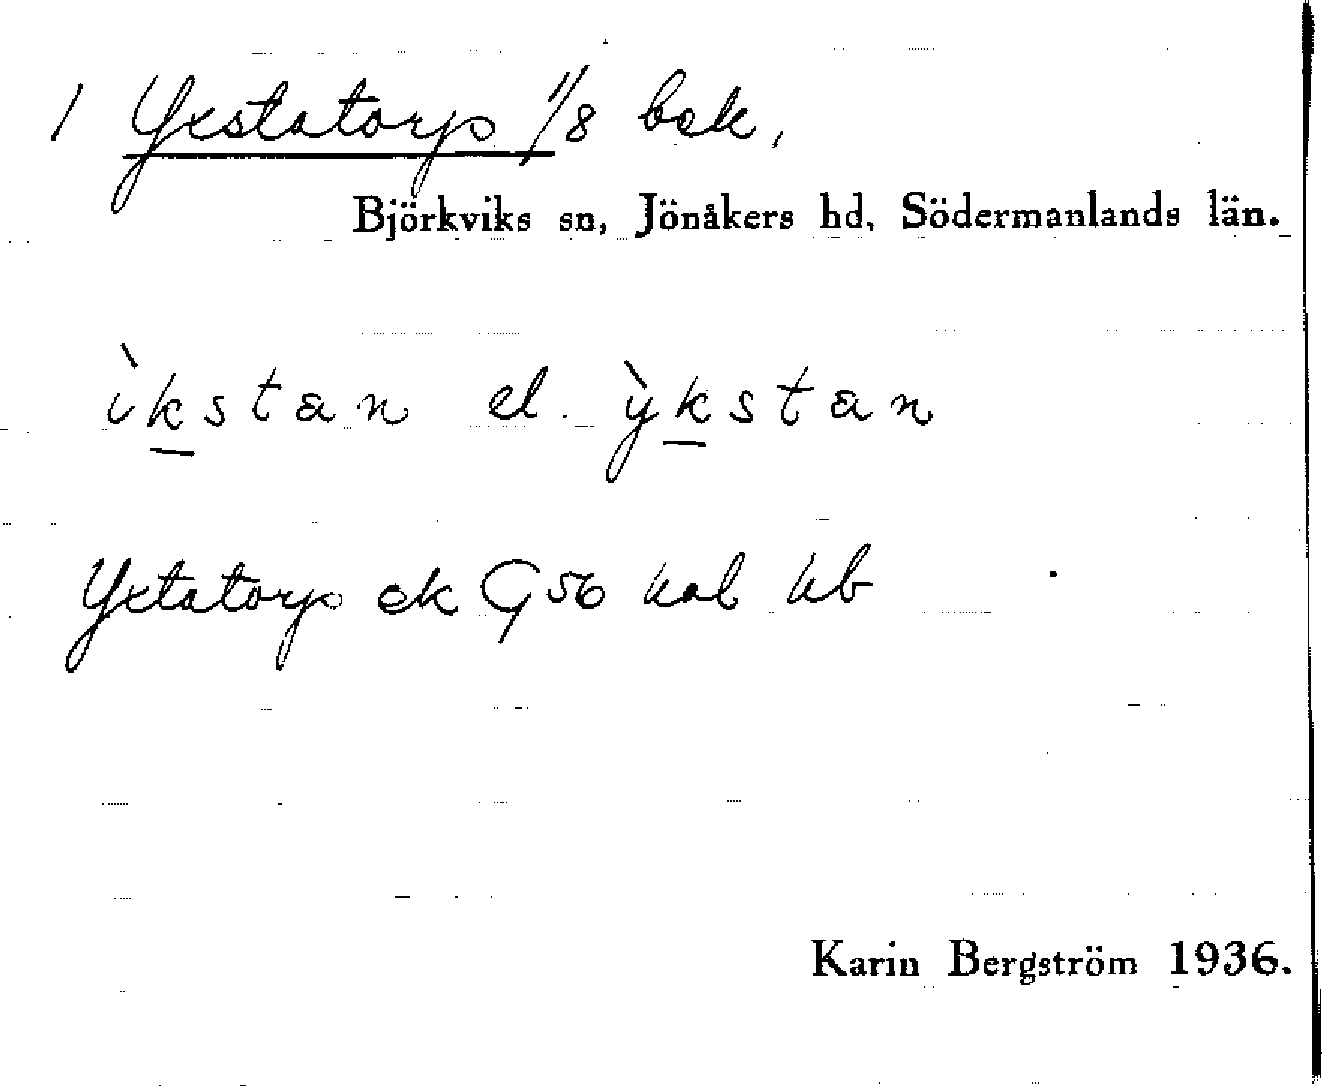 1 Yxstatorp 1/8 bok,
Björkviks sn, Jönåkers hd, Södermanlands län.
ìkstan el. ỳkstan
Yxtatorp ek G 56 kal hb
Karin Bergström 1936.